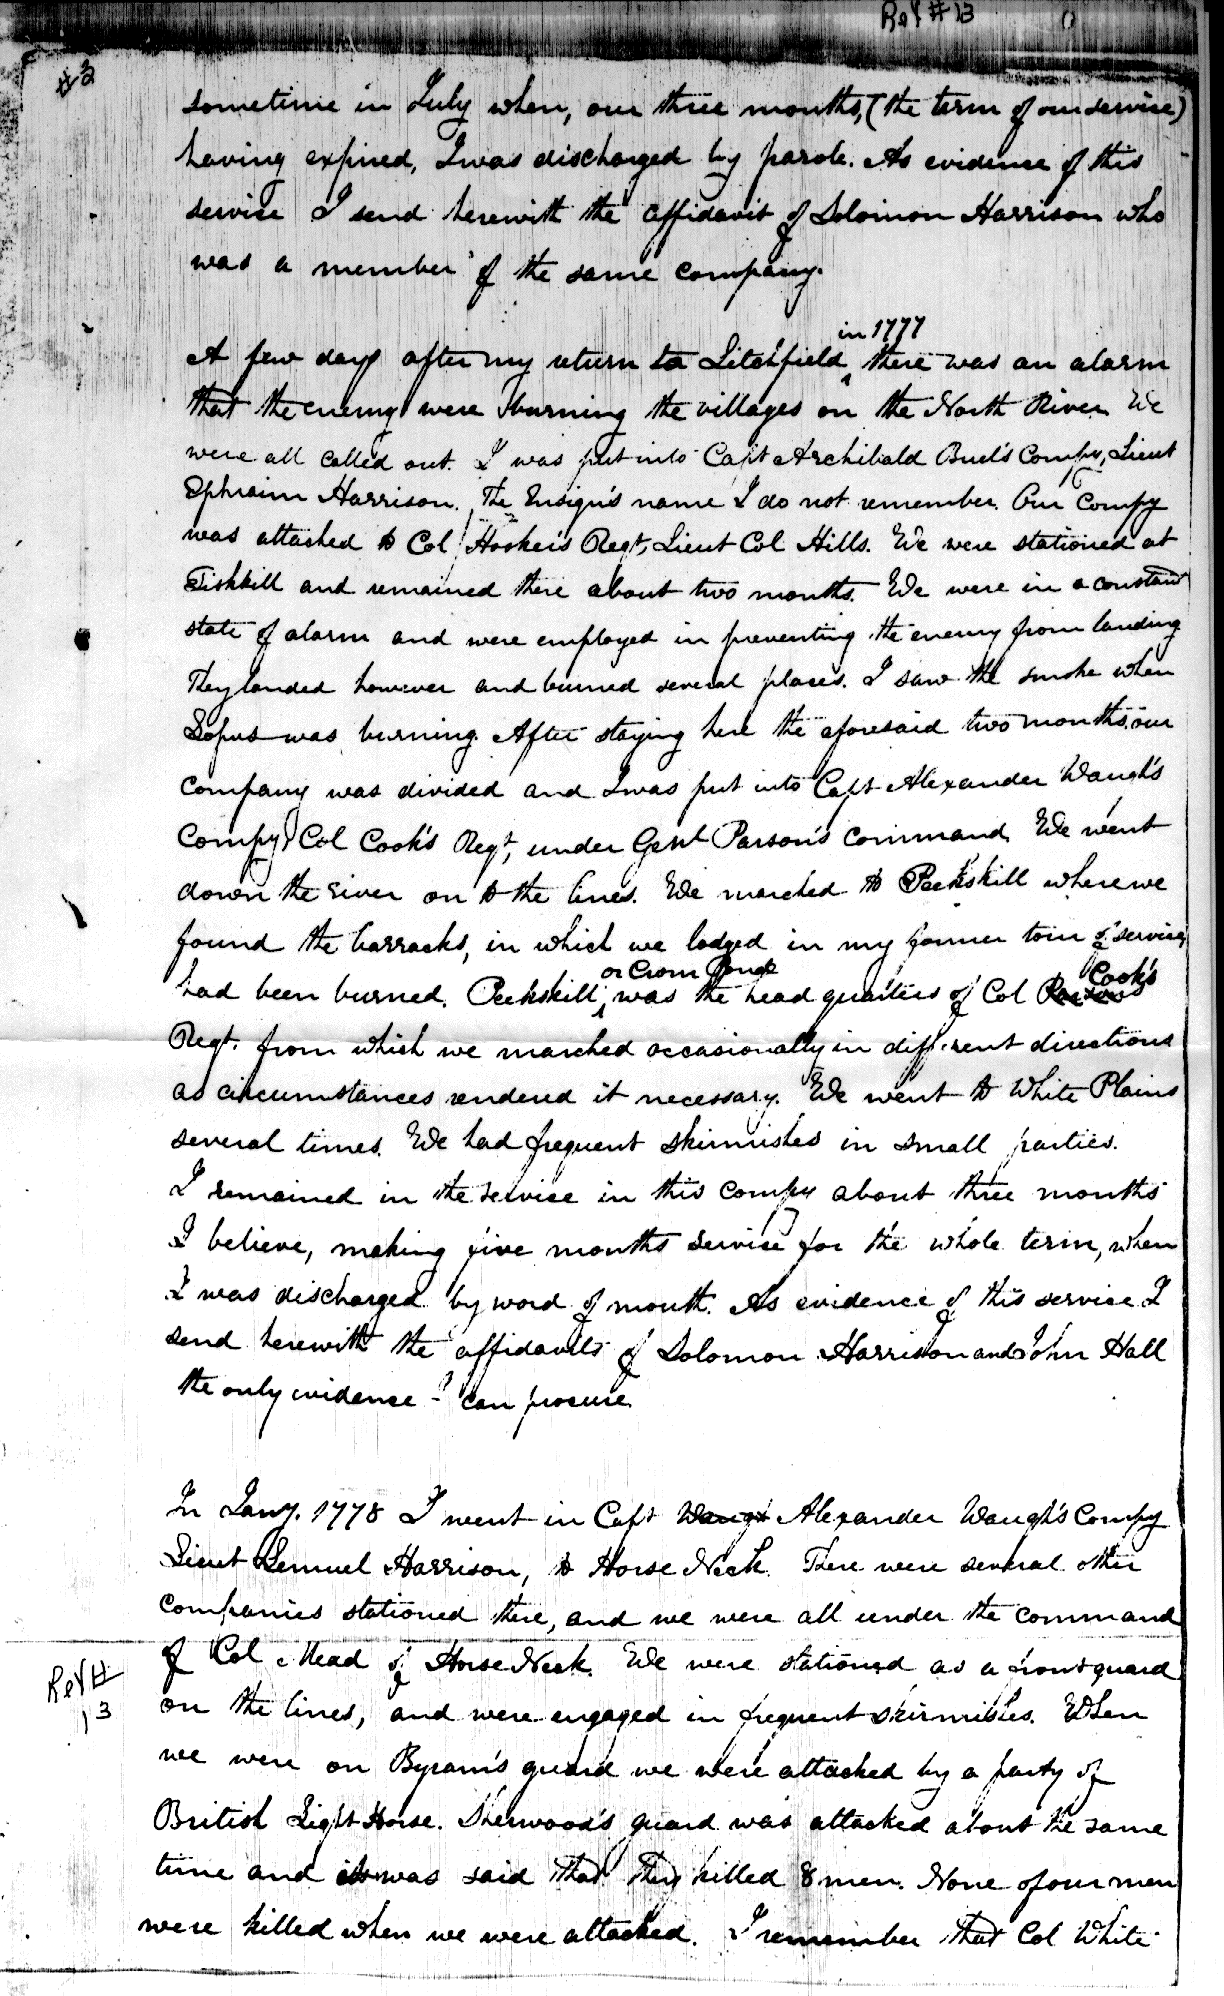 Rev #13
#3
sometime in July when, our three months, (the term of our service)
having expired, I was discharged by parole. As evidence of this
service I send herewith the affidavit of Solomon Harrison who
was a member of the same company.
in 1777
A few days after my return to Litchfield, there was an alarm
that the enemy were burning the villages on the North River. We
were all called out. I was put into Capt Archibald Buel's Compy, Lieut
Ephraim Harrison. The Ensign's name I do not remember. Our Compy
was attached to Col Hooker's Regt, Lieut Col Hills. We were stationed at
Fishkill and remained there about two months. We were in a constant
state of alarm and were employed in preventing the enemy from landing
They landed however and burned several places. I saw the smoke when
Sopus was burning. After staying here the aforesaid two months, our
company was divided and I was put into Capt Alexander Waugh's
Compy, Col Cook's Regt, under Genl Parson's command. We went
down the river on to the lines. We marched to Peekskill where we
found the barracks, in which we lodged in my former tour of service,
or Crom Pond Cook's
had been burned. Peekskill, was the head quarters of Col Parsons
Regt. from which we marched occasionally in different directions
as circumstances rendered it necessary. We went to White Plains
several times. We had frequent skirmishes in small parties.
I remained in the service in this Compy about three months
I believe, making five months service for the whole term, when
I was discharged by word of mouth. As evidence of this service I
send herewith the affidavits of Solomon Harrison and John Hall
the only evidence I can procure
In Jany. 1778 I went in Capt Waugh Alexander Waugh's Compy
Lieut Lemuel Harrison, to Horse Neck. There were several other
companies stationed there, and we were all under the command
of Col Mead of Horse Neck. We were stationed as a front guard
on the lines, and were engaged in frequent skirmishes. When
we were on Byram's guard we were attacked by a party of
British Light Horse. Sherwood's guard was attacked about the same
time and it was said that they killed 8 men. None of our men
were killed when we were attacked. I remember that Col White
Rev #
13